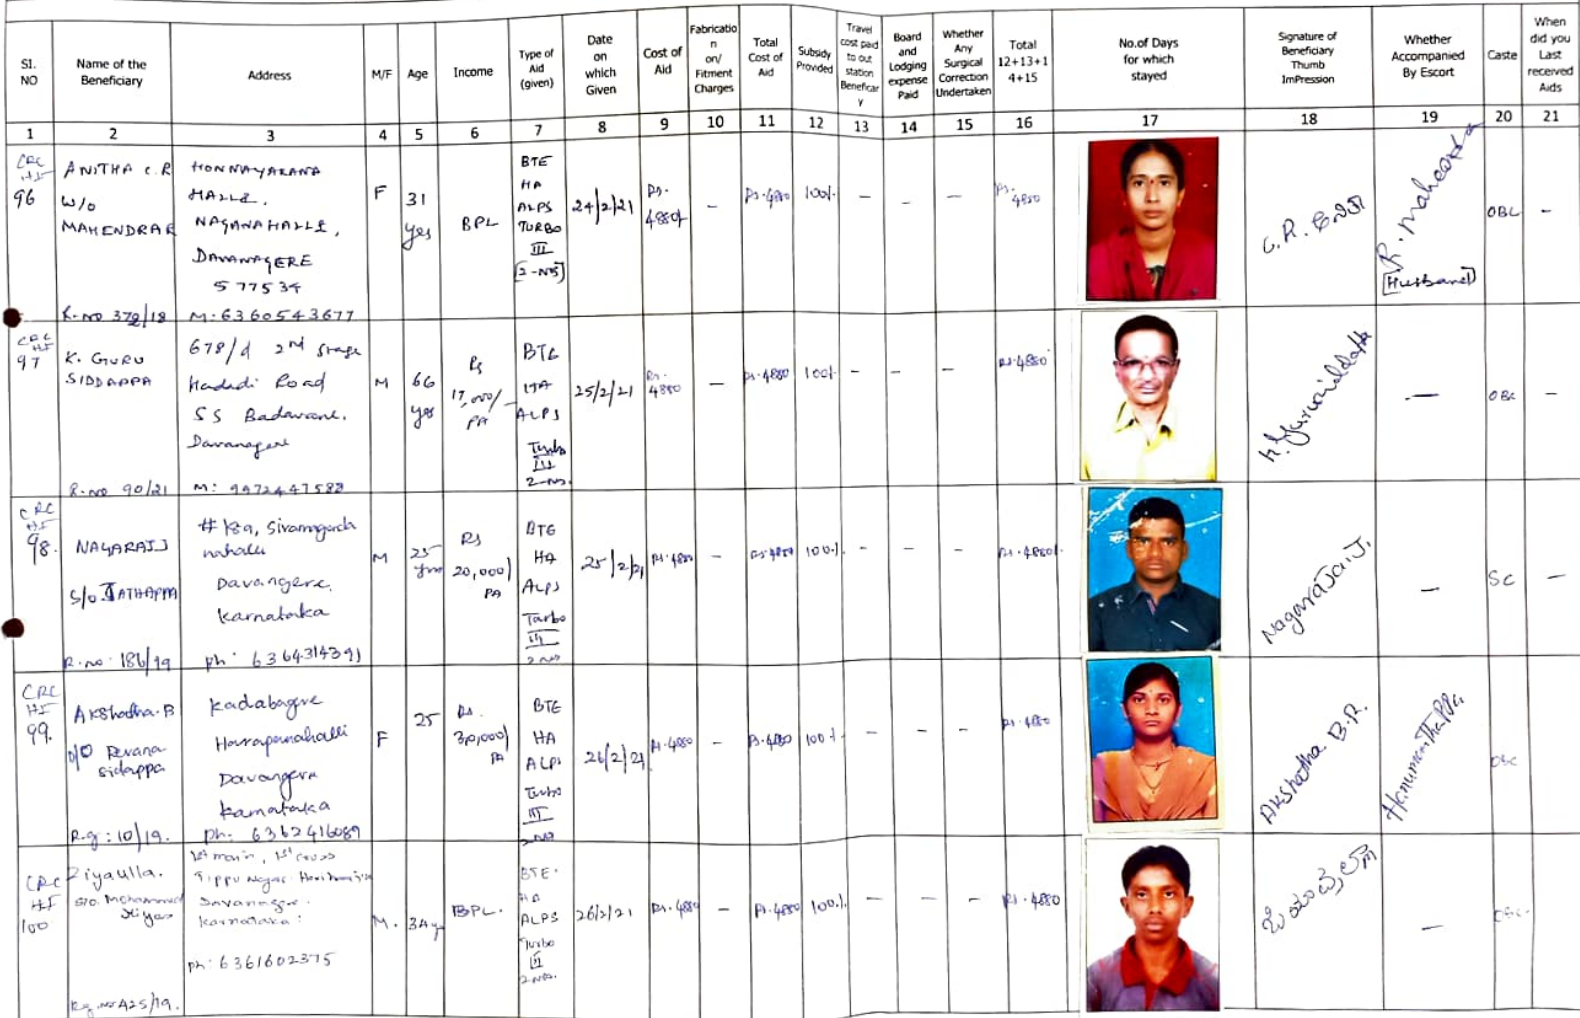 SI. NO
Name of the Beneficiary
Address
M/F
Age
Income
Type of Aid (given)
Date on which Given
Cost of Aid
Fabricatio n on/ Fitment Charges
Total Cost of Aid
Subsidy Provided
Travel cost paid to out station Beneficar y
Board and Lodging expense Paid
Whether Any Surgical Correction Undertaken
Total 12+13+1 4+15
No.of Days for which stayed
Signature of Beneficiary Thumb ImPression
Whether Accompanied By Escort
Caste
When did you Last received Aids
1 2 3 4 5 6 7 8 9 10 11 12 13 14 15 16 17 18 19 20 21
CRC HI 96
ANITHA C.R
W/o
MAHENDRAR
R-no 379/18
HALLI,
NAGANAHALLI,
DAVANAGERE
577534
M: 6360543677
F
31
yes
BPL
BTE
HA
ALPS
TURBO
III
[2-NOS]
24/2/21
Rs.
4880/-
–
Rs.4880
100%
–
–
–
Rs.
4880
C.R.
[Husband]
OBC
–
CRC HI 97
K. GURU
SIDDAPPA
R-no 90/21
678/d 2nd Stage
Hadadi Road
SS Badavane,
Davanagere
M: 9972447588
M
66
yes
Rs
17,000/-
PA
BTE
HA
ALPS
Turbo
III
2-no.
25/2/21
Rs.
4880
–
Rs.4880
100%
–
–
–
Rs.4880
–
OBC
–
CRC HI 98.
NAGARAJ J
S/o JATHAPPA
R.no: 186/19
Davangere,
Karnataka
ph: 6364314391
M
25
Rs
20,000/
PA
BTE
HA
ALPS
Turbo
III
2 no
25/2/21
Rs.4880
–
Rs.4880
100%
–
–
–
Rs.4880/-
Nagaraja.J.
–
SC
–
CRC HI 99.
Akshatha.B
D/O Revana
sidappa
R.g: 10/19.
Kadabagere
Harrapanahalli
Davangere
Karnataka
ph: 6362416089
F
25
Rs.
30,000/
PA
BTE
HA
ALPS
Turbo
III
26/2/21
Rs.4880
–
Rs.4880
100%
–
–
–
Rs.4880
Akshatha B.R.
Hanumanthappa
OBC
CRC HI 100
Ziyaulla.
S/o. Mohammed
Reg.no 425/19.
1st main, 1st cross
Tippu Nagar
Davanagere.
Karnataka:
ph: 6361602375
M.
34y
BPL.
BTE.
HA
ALPS
Turbo
2 nos.
26/2/21
Rs.4880
–
Rs.4880
100%
–
–
–
Rs.4880
–
OBC.